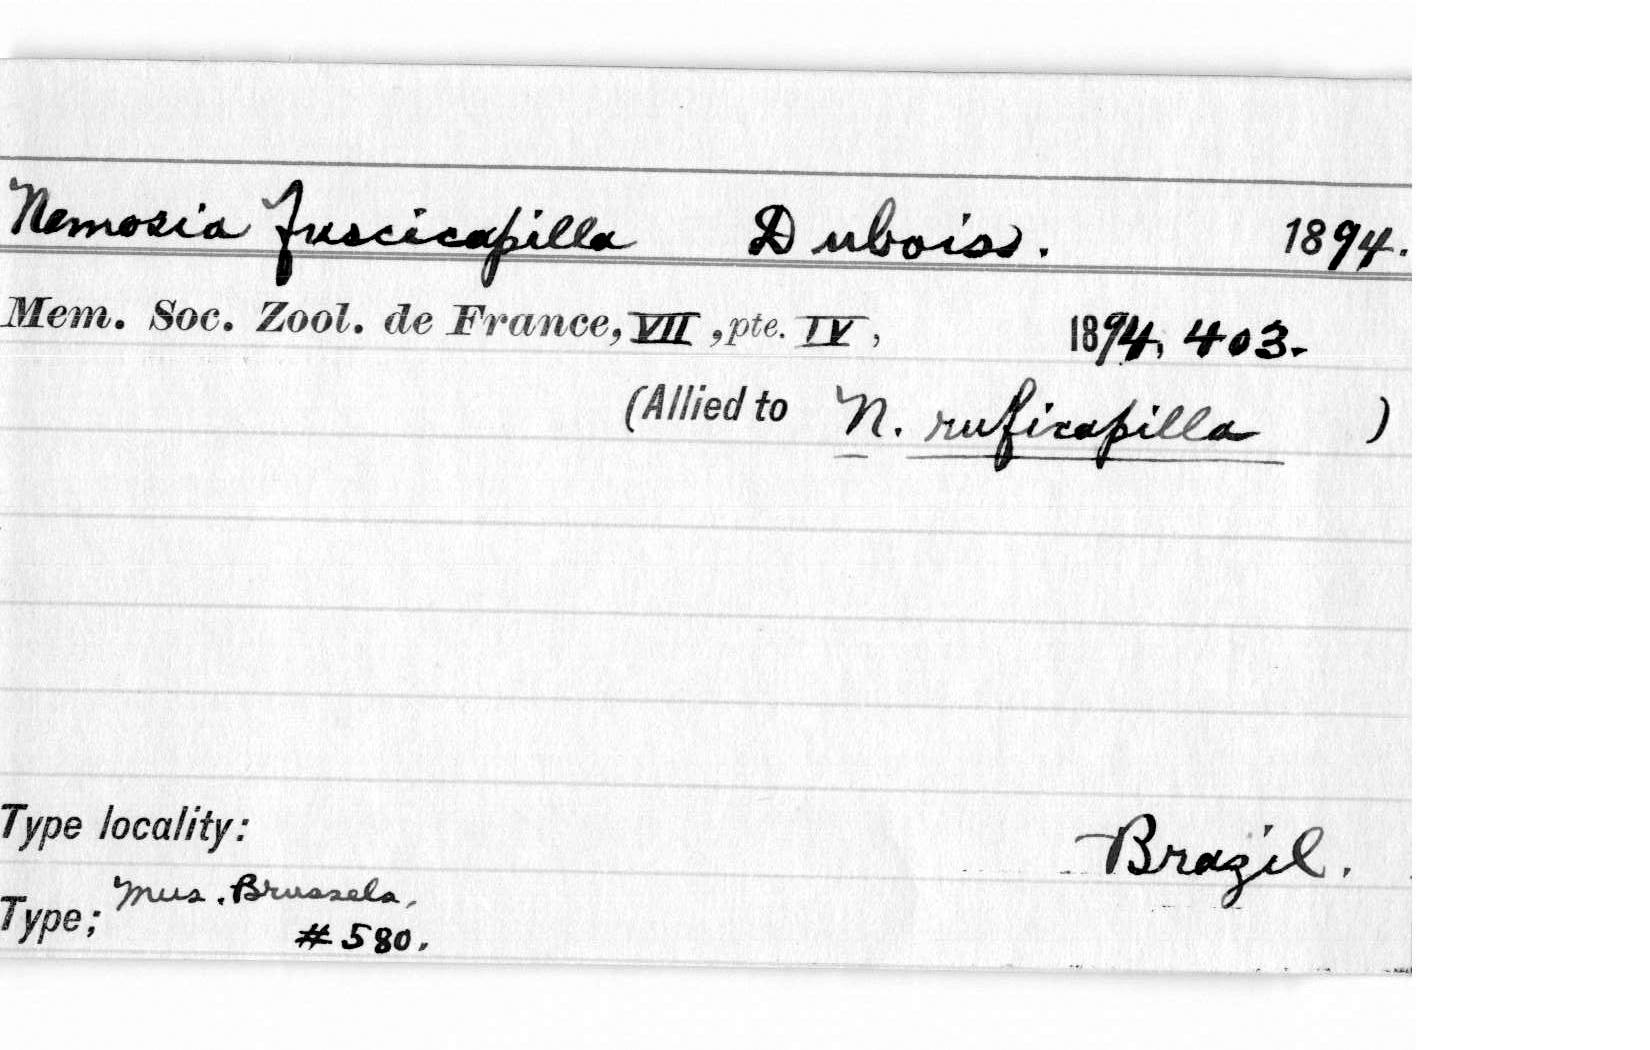 Nemosia fuscicapilla Dubois. 1894.
Mem. Soc. Zool. de France, VII, pte. IV, 1894, 403.
(Allied to N. ruficapilla )
Type locality: Brazil.
Type; Mus. Brussels.
#580.